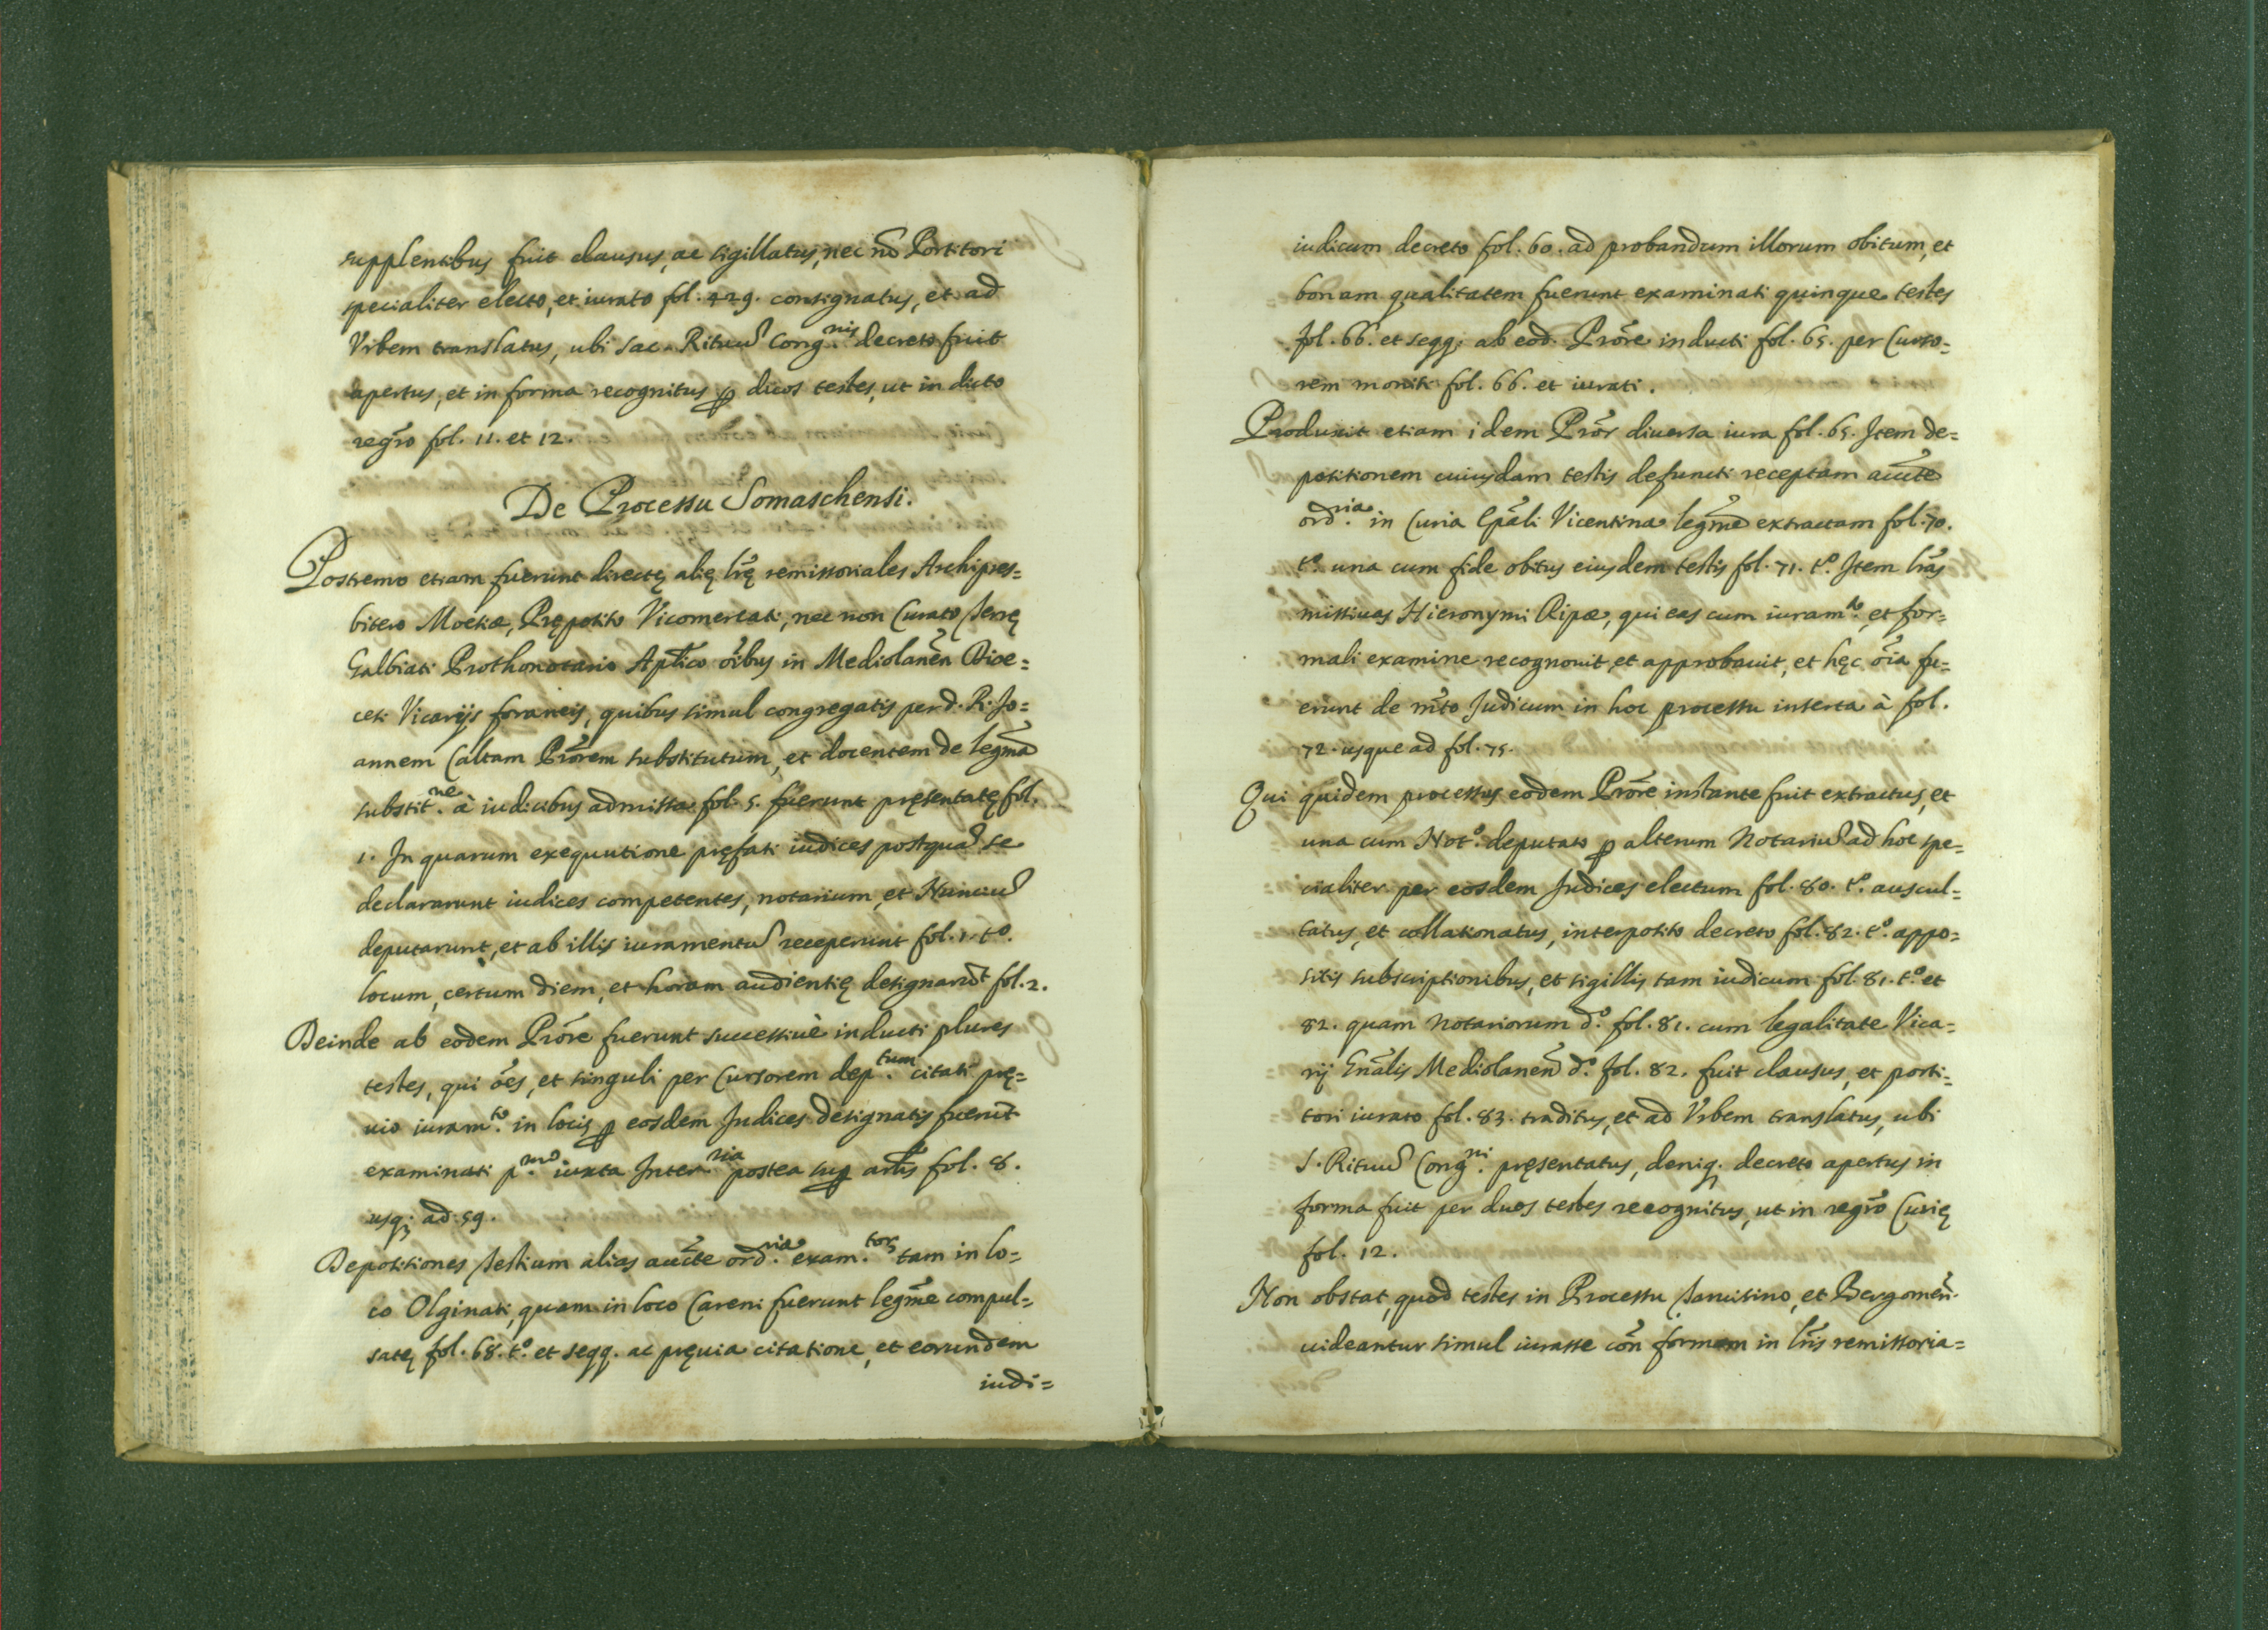 supplentibus fuit clausus, ac sigillatus, nec nõ Portitori
specialiter electo, et iurato fol. 429. consignatus, et ad
Vrbem translatus, ubi Sac. Rituũ Cong.nis decreto fuit
apertus, et in forma recognitus ꝑ duos testes, ut in dicto
regr̃o fol. 11. et 12.
De Processu Somaschensi.
Postremo etiam fuerunt directę alię lr̃ę remissoriales Archipres=
bitero Moetiæ, Pręposito Vicomercati, nec non Curato Terrę
Galbiati Prothonotario Apl̃ico õibus in Mediolanen̄ Dioe=
cesi Vicarijs foraneis, quibus simul congregatis per d. R. Jo=
annem Caltam Prõrem substitutum, et docentem de legm̃a
substit.ne à iudicibus admissa fol. 5. fuerunt pręsentatę fol.
1. In quarum exequutione pręfati iudices postquã se
declararunt iudices competentes, notarium, et Nunciũ
deputarunt, et ab illis iuramentũ receperunt fol. 1. tº.
locum, certum diem, et horam audientię designarũt fol. 2.
Deinde ab eodem Prõre fuerunt successiuè inducti plures
testes, qui ões, et singuli per Cursorem dep.tum citati prę=
uio iuram.to in locis ꝑ eosdem Judices designatis fuerũt
examinati p.mo iuxta Inter.ria postea suꝑ arl̃is fol. 8.
usq; ad 59.
Depositiones testium alias auc̃te ord.ria exam.tor tam in lo=
co Olginati, quam in loco Careni fuerunt legm̃e compul=
satę fol. 68. tº. et seqq. ac pręuia citatione, et eorundem
iudi=
iudicum decreto fol. 60. ad probandum illorum obitum, et
bonam qualitatem fuerunt examinati quinque testes
fol. 66. et seqq. ab eod. Prõre inducti fol. 65. per Curso=
rem moniti fol. 66. et iurati.
Produxit etiam idem Prõr diuersa iura fol. 65. Item de=
positionem cuiusdam testis defuncti receptam auc̃te
ord.ria in Curia Ep̃ali Vicentina legm̃e extractam fol. 70.
tº. una cum fide obitus eiusdem testis fol. 71. tº. Item lr̃as
missiuas Hieronymi Ripæ, qui eas cum iuram.to, et for=
mali examine recognouit, et approbauit, et hęc õia fu=
erunt de mr̃to Judicum in hoc processu inserta à fol.
72. usque ad fol. 75.
Qui quidem processus eodem Prõre instante fuit extractus, et
una cum Not.º deputato ꝑ alterum Notariũ ad hoc spe=
cialiter per eosdem Judices electum fol. 80. tº. auscul=
tatus, et collationatus, interposito decreto fol. 82. tº. appo=
sitis subscriptionibus, et sigillis tam iudicum fol. 81. tº. et
82. quam Notariorum d.º fol. 81. cum legalitate Vica=
rij Gñalis Mediolanen̄ d.º fol. 82. fuit clausus, et porti=
tori iurato fol. 83. traditus, et ad Vrbem translatus, ubi
S. Rituũ Cong.ni pręsentatus, deniq; decreto apertus in
forma fuit per duos testes recognitus, ut in regr̃o Curię
fol. 12.
Non obstat, quod testes in Processu Taruisino, et Bergomen̄.
uideantur simul iurasse cõn formam in lr̃is remissoria=